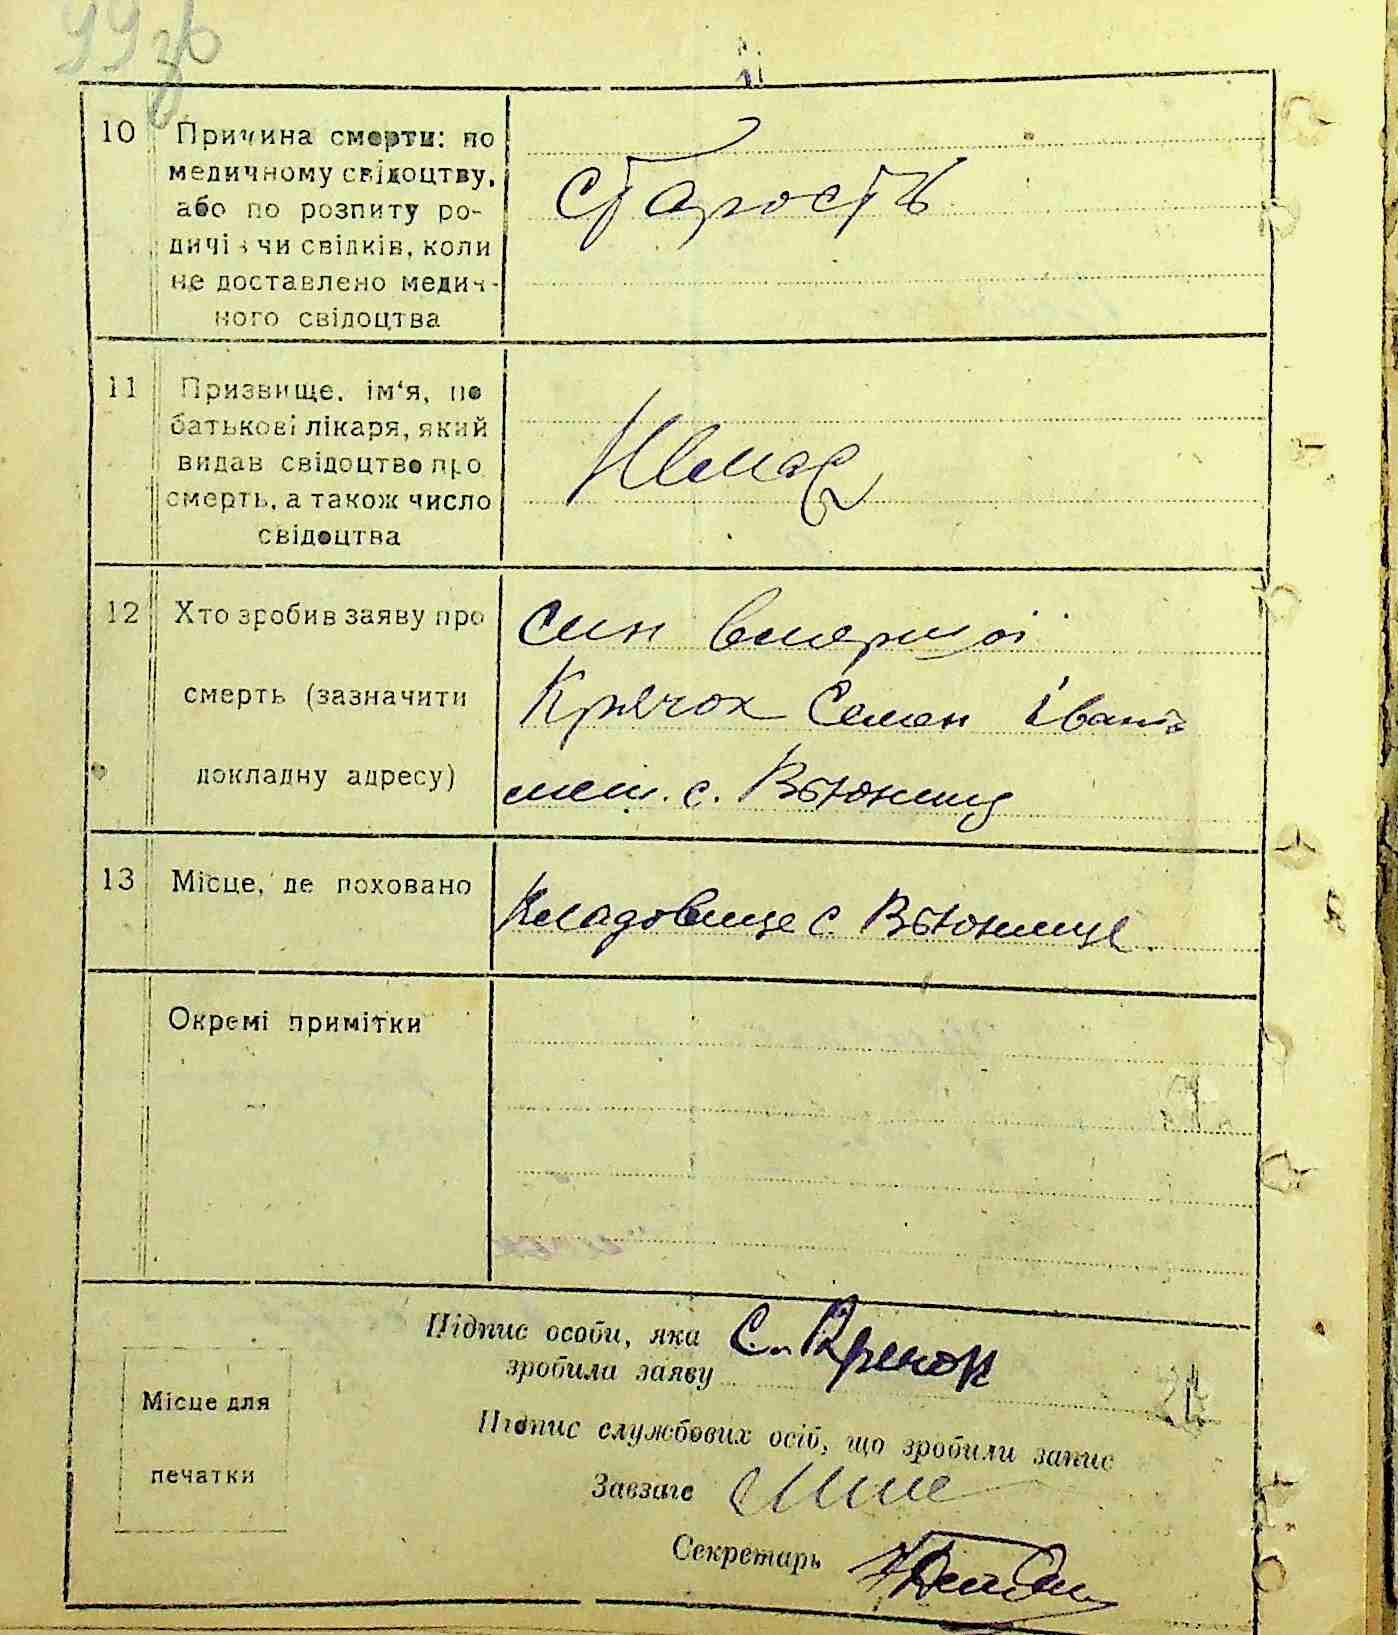 99 зв
10 Причина смерти: по
медичному свідоцтву,
або по розпиту ро-
дичів чи свідків, коли
не доставлено медич-
ного свідоцтва
старость
11 Призвище, ім'я, по
батькові лікаря, який
видав свідоцтво про
смерть, а також число
свідоцтва
Немає
12 Хто зробив заяву про
смерть (зазначити
докладну адресу)
син вмершої
Крячок Семен Іванів
меш. с. Вьюнищ
13 Місце, де поховано
Кладовище с. Вьюнище
Окремі примітки
Підпис особи, яка
зробила заяву
С. Крячок
Місце для
печатки
Підпис службових осіб, що зробили запис
Завзагс
Секретарь